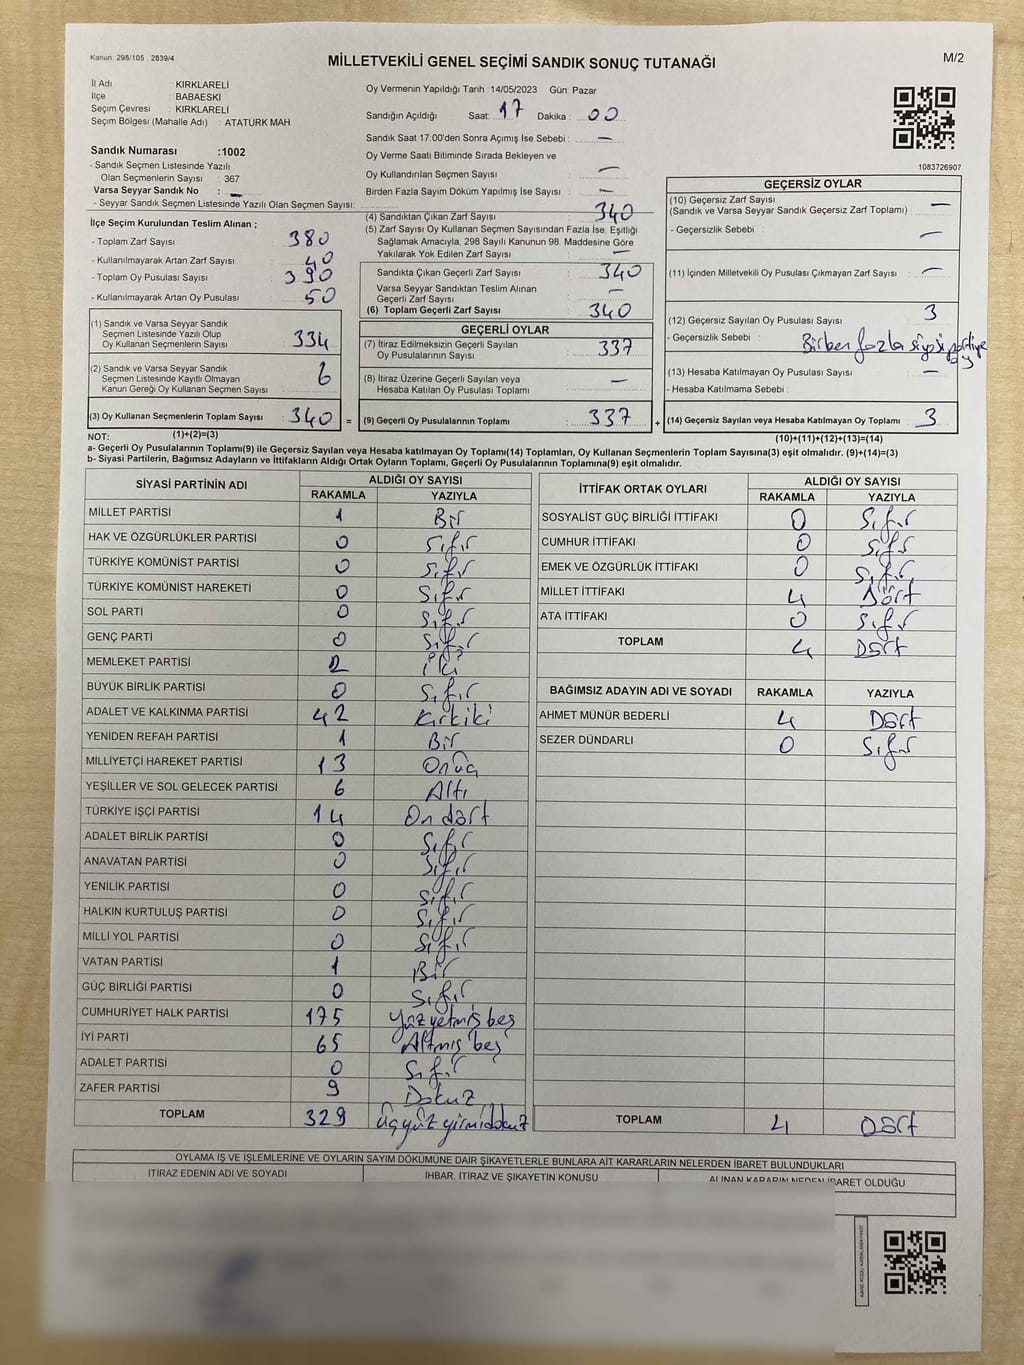 Kanun: 298/105 . 2839/4
MİLLETVEKİLİ GENEL SEÇİMİ SANDIK SONUÇ TUTANAĞI
M/2
İl Adı KIRKLARELİ
İlçe BABAESKİ
Seçim Çevresi KIRKLARELİ
Seçim Bölgesi (Mahalle Adı) : ATATÜRK MAH
Oy Vermenin Yapıldığı Tarih : 14/05/2023 Gün: Pazar
Sandığın Açıldığı Saat: 17 Dakika : 00
Sandık Saat 17:00'den Sonra Açımış İse Sebebi : —
Oy Verme Saati Bitiminde Sırada Bekleyen ve
Oy Kullandırılan Seçmen Sayısı : —
Birden Fazla Sayım Döküm Yapılmış İse Sayısı : —
1083726907
Sandık Numarası :1002
- Sandık Seçmen Listesinde Yazılı
Olan Seçmenlerin Sayısı : 367
Varsa Seyyar Sandık No : —
- Seyyar Sandık Seçmen Listesinde Yazılı Olan Seçmen Sayısı:
İlçe Seçim Kurulundan Teslim Alınan ;
- Toplam Zarf Sayısı : 380
- Kullanılmayarak Artan Zarf Sayısı : 40
- Toplam Oy Pusulası Sayısı : 390
- Kullanılmayarak Artan Oy Pusulası : 50
(1) Sandık ve Varsa Seyyar Sandık
Seçmen Listesinde Yazılı Olup
Oy Kullanan Seçmenlerin Sayısı : 334
(2) Sandık ve Varsa Seyyar Sandık
Seçmen Listesinde Kayıtlı Olmayan
Kanun Gereği Oy Kullanan Seçmen Sayısı : 6
(3) Oy Kullanan Seçmenlerin Toplam Sayısı : 340 =
(1)+(2)=(3)
(4) Sandıktan Çıkan Zarf Sayısı : 340
(5) Zarf Sayısı Oy Kullanan Seçmen Sayısından Fazla İse, Eşitliği
Sağlamak Amacıyla, 298 Sayılı Kanunun 98. Maddesine Göre
Yakılarak Yok Edilen Zarf Sayısı : —
Sandıkta Çıkan Geçerli Zarf Sayısı : 340
Varsa Seyyar Sandıktan Teslim Alınan
Geçerli Zarf Sayısı : —
(6) Toplam Geçerli Zarf Sayısı : 340
GEÇERLİ OYLAR
(7) İtiraz Edilmeksizin Geçerli Sayılan
Oy Pusulalarının Sayısı : 337
(8) İtiraz Üzerine Geçerli Sayılan veya
Hesaba Katılan Oy Pusulası Toplamı : —
(9) Geçerli Oy Pusulalarının Toplamı : 337 +
GEÇERSİZ OYLAR
(10) Geçersiz Zarf Sayısı
(Sandık ve Varsa Seyyar Sandık Geçersiz Zarf Toplamı) : —
- Geçersizlik Sebebi : —
(11) İçinden Milletvekili Oy Pusulası Çıkmayan Zarf Sayısı : —
(12) Geçersiz Sayılan Oy Pusulası Sayısı : 3
- Geçersizlik Sebebi : Birden fazla siyasi partiye oy
(13) Hesaba Katılmayan Oy Pusulası Sayısı : —
- Hesaba Katılmama Sebebi :
(14) Geçersiz Sayılan veya Hesaba Katılmayan Oy Toplamı : 3
(10)+(11)+(12)+(13)=(14)
NOT:
a- Geçerli Oy Pusulalarının Toplamı(9) ile Geçersiz Sayılan veya Hesaba katılmayan Oy Toplamı(14) Toplamları, Oy Kullanan Seçmenlerin Toplam Sayısına(3) eşit olmalıdır. (9)+(14)=(3)
b- Siyasi Partilerin, Bağımsız Adayların ve İttifakların Aldığı Ortak Oyların Toplamı, Geçerli Oy Pusulalarının Toplamına(9) eşit olmalıdır.
SİYASİ PARTİNİN ADI ALDIĞI OY SAYISI
RAKAMLA YAZIYLA
MİLLET PARTİSİ 1 Bir
HAK VE ÖZGÜRLÜKLER PARTİSİ 0 Sıfır
TÜRKİYE KOMÜNİST PARTİSİ 0 Sıfır
TÜRKİYE KOMÜNİST HAREKETİ 0 Sıfır
SOL PARTİ 0 Sıfır
GENÇ PARTİ 0 Sıfır
MEMLEKET PARTİSİ 2 İki
BÜYÜK BİRLİK PARTİSİ 0 Sıfır
ADALET VE KALKINMA PARTİSİ 42 Kırkiki
YENİDEN REFAH PARTİSİ 1 Bir
MİLLİYETÇİ HAREKET PARTİSİ 13 Onüç
YEŞİLLER VE SOL GELECEK PARTİSİ 6 Altı
TÜRKİYE İŞÇİ PARTİSİ 14 On dört
ADALET BİRLİK PARTİSİ 0 Sıfır
ANAVATAN PARTİSİ 0 Sıfır
YENİLİK PARTİSİ 0 Sıfır
HALKIN KURTULUŞ PARTİSİ 0 Sıfır
MİLLİ YOL PARTİSİ 0 Sıfır
VATAN PARTİSİ 1 Bir
GÜÇ BİRLİĞİ PARTİSİ 0 Sıfır
CUMHURİYET HALK PARTİSİ 175 Yüzyetmişbeş
İYİ PARTİ 65 Altmışbeş
ADALET PARTİSİ 0 Sıfır
ZAFER PARTİSİ 9 Dokuz
TOPLAM 329 üçyüzyirmidokuz
İTTİFAK ORTAK OYLARI ALDIĞI OY SAYISI
RAKAMLA YAZIYLA
SOSYALİST GÜÇ BİRLİĞİ İTTİFAKI 0 Sıfır
CUMHUR İTTİFAKI 0 Sıfır
EMEK VE ÖZGÜRLÜK İTTİFAKI 0 Sıfır
MİLLET İTTİFAKI 4 Dört
ATA İTTİFAKI 0 Sıfır
TOPLAM 4 Dört
BAĞIMSIZ ADAYIN ADI VE SOYADI RAKAMLA YAZIYLA
AHMET MÜNÜR BEDERLİ 4 Dört
SEZER DÜNDARLI 0 Sıfır
TOPLAM 4 Dört
OYLAMA İŞ VE İŞLEMLERİNE VE OYLARIN SAYIM DÖKÜMÜNE DAİR ŞİKAYETLERLE BUNLARA AİT KARARLARIN NELERDEN İBARET BULUNDUKLARI
İTİRAZ EDENİN ADI VE SOYADI İHBAR, İTİRAZ VE ŞİKAYETİN KONUSU ALINAN KARARIN NEDEN İBARET OLDUĞU